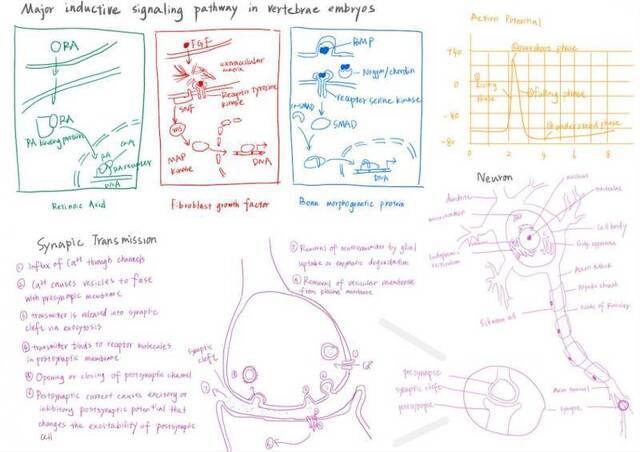 Major inductive signaling pathway in vertebrae embryos
RA
RA
RA binding protein
RA
RA receptor
DNA
Retinoic Acid
FGF
extracellular matrix
Receptor tyrosine
kinase
MAP
kinase
DNA
Fibroblast growth factor
BMP
Nogin/chordin
receptor serine kinase
SMAD
DNA
Bone morphogenetic protein
Action Potential
+40
0
-40
-80
0
2
4
6
8
overshoot phase
Rising
phase
falling phase
undershoot phase
Synapic Transmission
① Influx of Ca²⁺ through channels
② Ca²⁺ causes vesicles to fuse
with presynapic membrane
③ transmitter is released into synaptic
cleft via exocytosis
④ transmitter binds to receptor molecules
in postsynaptic membrane
⑤ Opening or closing of postsynaptic channel
⑥ Postsynaptic current causes excitory or
inhibitory postsynaptic potential that
changes the excitability of postsynaptic
cell
⑦ Removal of neurotransmitter by glial
uptake or enzymatic degradation
⑧ Removal of vesicular membrane
from plasma membrane
synaptic
cleft
Neuron
nucleus
nucleolus
dendrite
mitochondrion
cell body
Golgi apparatus
Endoplasmic
reticulum
Axon hillock
Myelin sheath
Node of Ranvier
Schwann cell
Axon terminal
synapse
presynapse
synaptic cleft
postsynapse